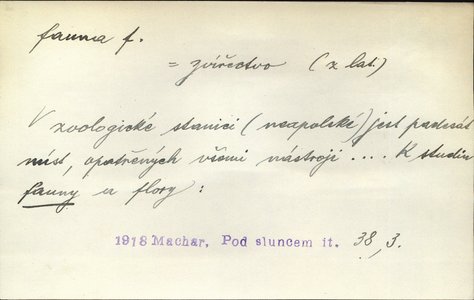 fauna f.
= zvířectvo (z lat.)
V zoologické stanici (neapolské) jest padesát
míst, opatřených všemi nástroji .... K studiu
fauny a flory :
1918 Machar, Pod sluncem it. 38, 3.